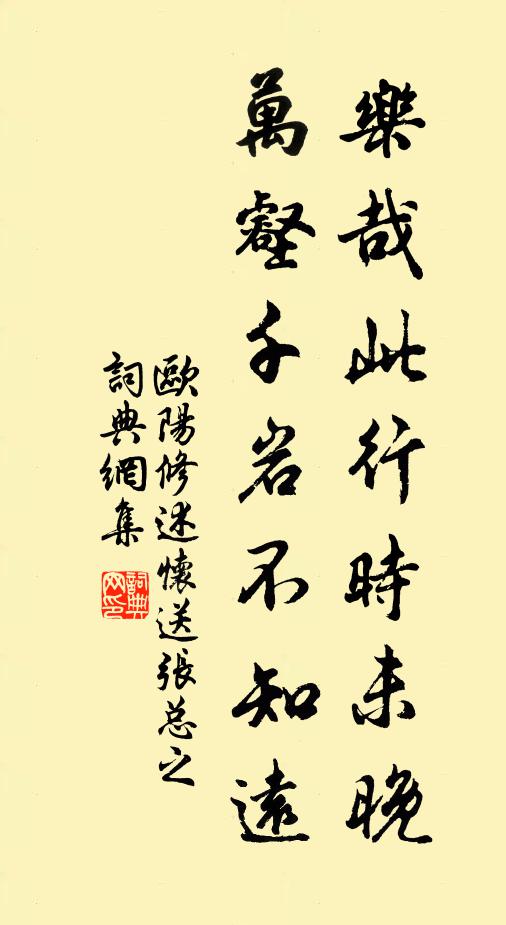 樂哉此行時未晚
萬壑千岩不知遠
歐陽修述懷送張总之
詞典網集
詞典网印